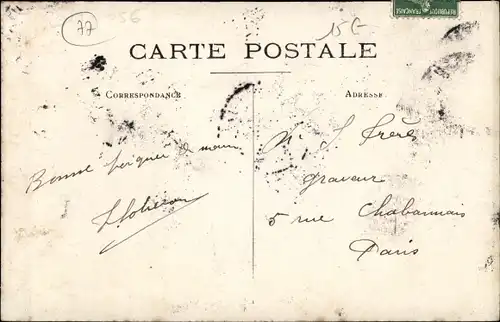 77
15E
REPUBLIQUE FRANÇAISE
CARTE POSTALE
CORRESPONDANCE
ADRESSE
Bonne poignée de main
Mr J Frères
graveur
5 rue Chabannais
Paris